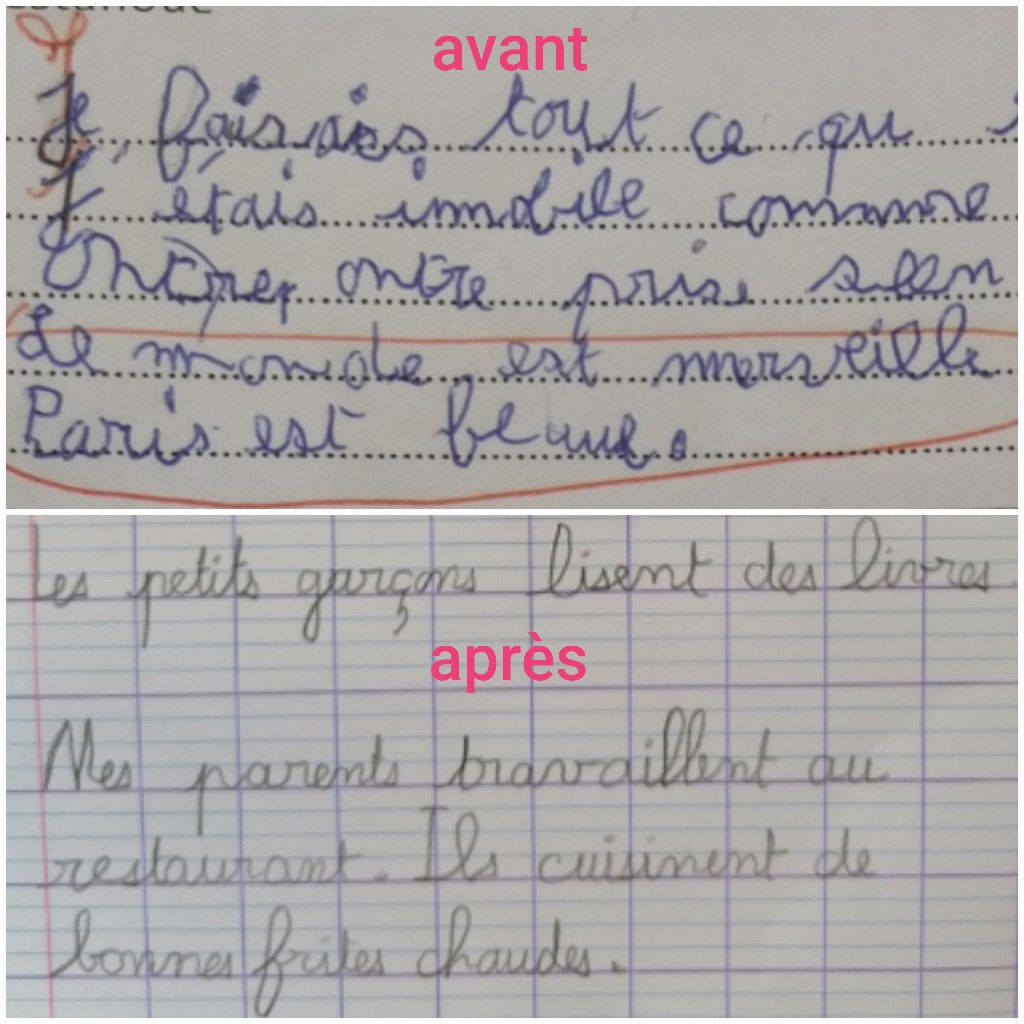 avant
Je faisais tout ce qu
J étais immobile comme
ontre prise
Le monde est merveille
Paris est
Les petits garçons lisent des livres
après
Mes parents travaillent au
restaurant. Ils cuisinent de
bonnes frites chaudes.